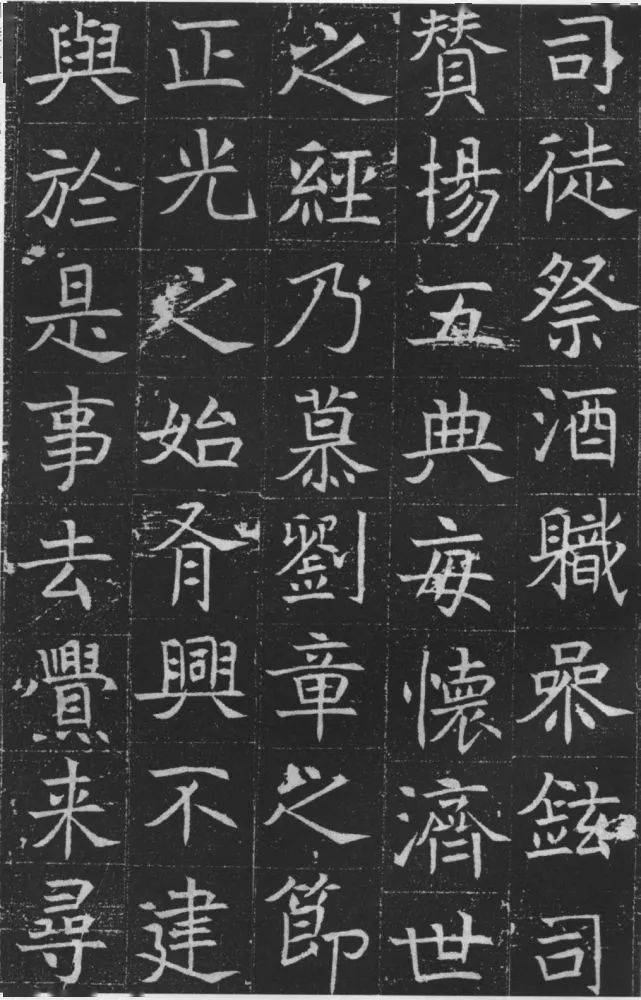 司徒祭酒軄參鉉司
賛揚五典每懷濟世
之經乃慕劉章之節
正光之始興不建
與於是事去釁来尋